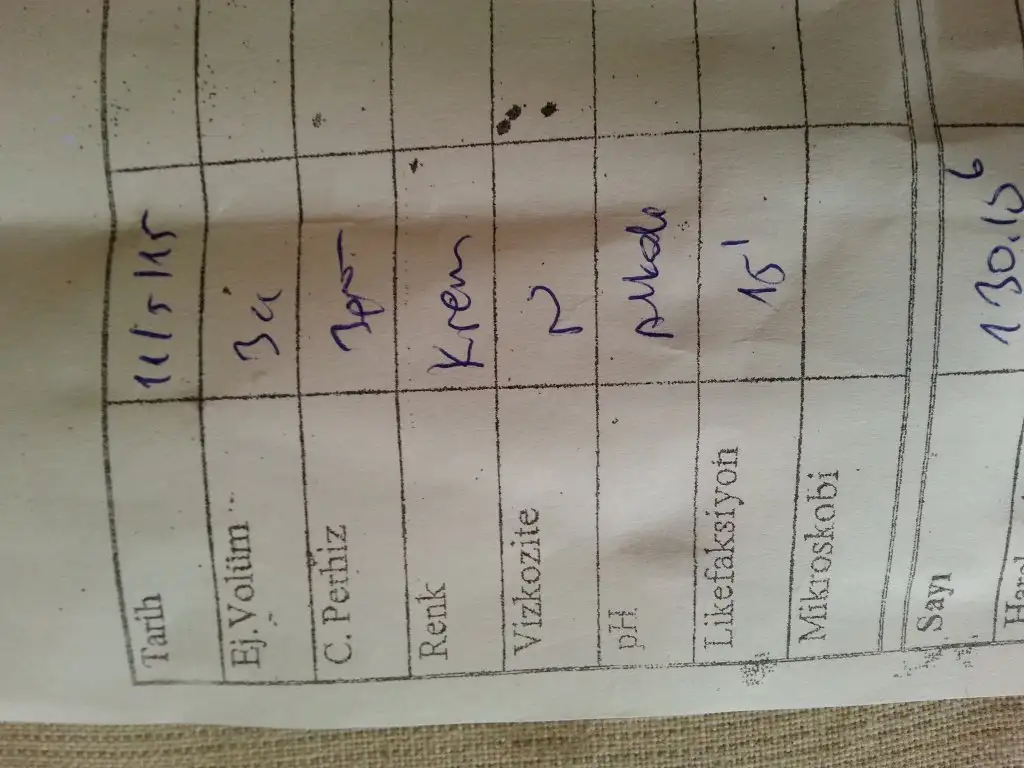 Tarih 11/5/15
Ej.Volüm 3
C. Perhiz 3
Renk Krem
Vizkozite N
pH Alkale
Likefaksiyon 15'
Mikroskobi
Sayı 130.10⁶